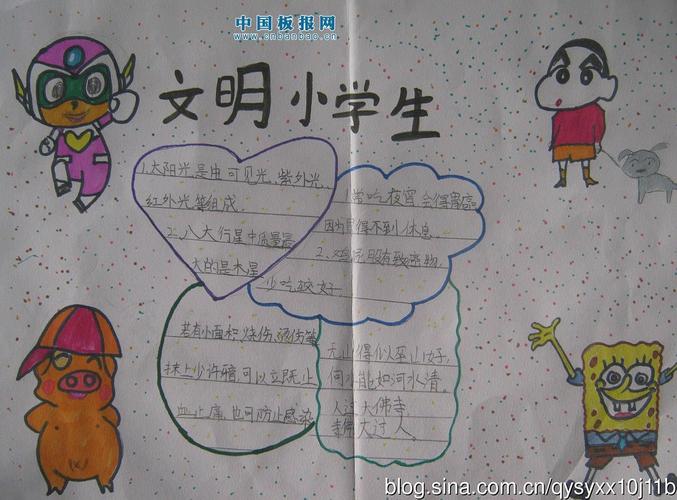 中国板报网
www.cnbanbao.cn
文明小学生
1.太阳光是由可见光、紫外光、
红外光等组成。
2.八大行星中质量最
大的是木星
1.常吃夜宵会得胃癌
因为胃得不到休息。
2.鸡屁股有致癌物,
少吃较好
若有小面积烧伤、烫伤等
抹上少许
可以立既止
血止痛,也可防止感染
无山得似巫山好,
何水能如河水清。
人过大佛寺
寺佛大过人。
blog.sina.com.cn/qysyxx10j11b